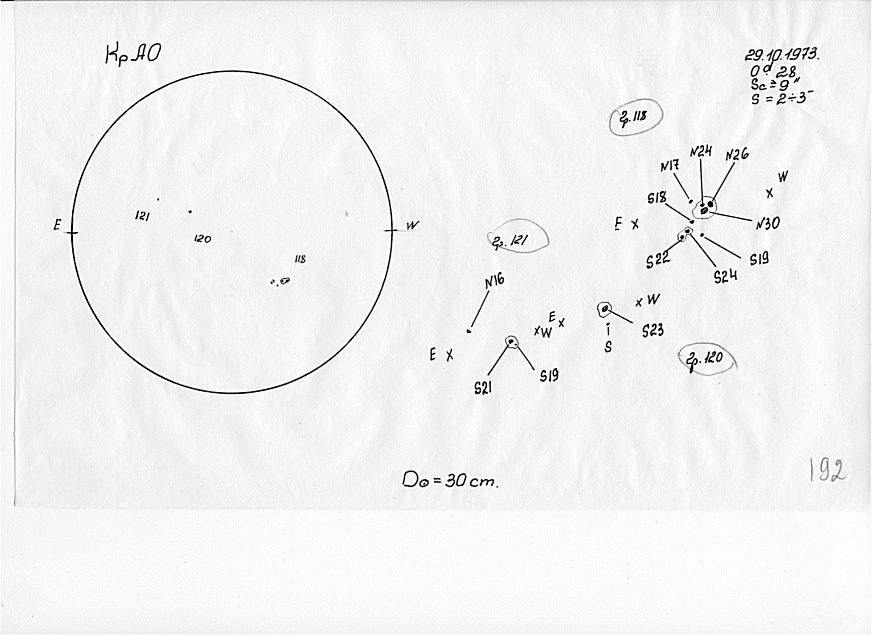 КрАО
29.10.1973.
0ᵈ.28
Sc≅9"
S = 2÷3⁻
E
W
121
120
118
гр.118
N17
N24
N26
W
S18
E
N30
S22
S24
S19
гр.121
N16
E
W
E
S21
S19
W
S23
S
гр.120
D⊙ = 30 cm.
192